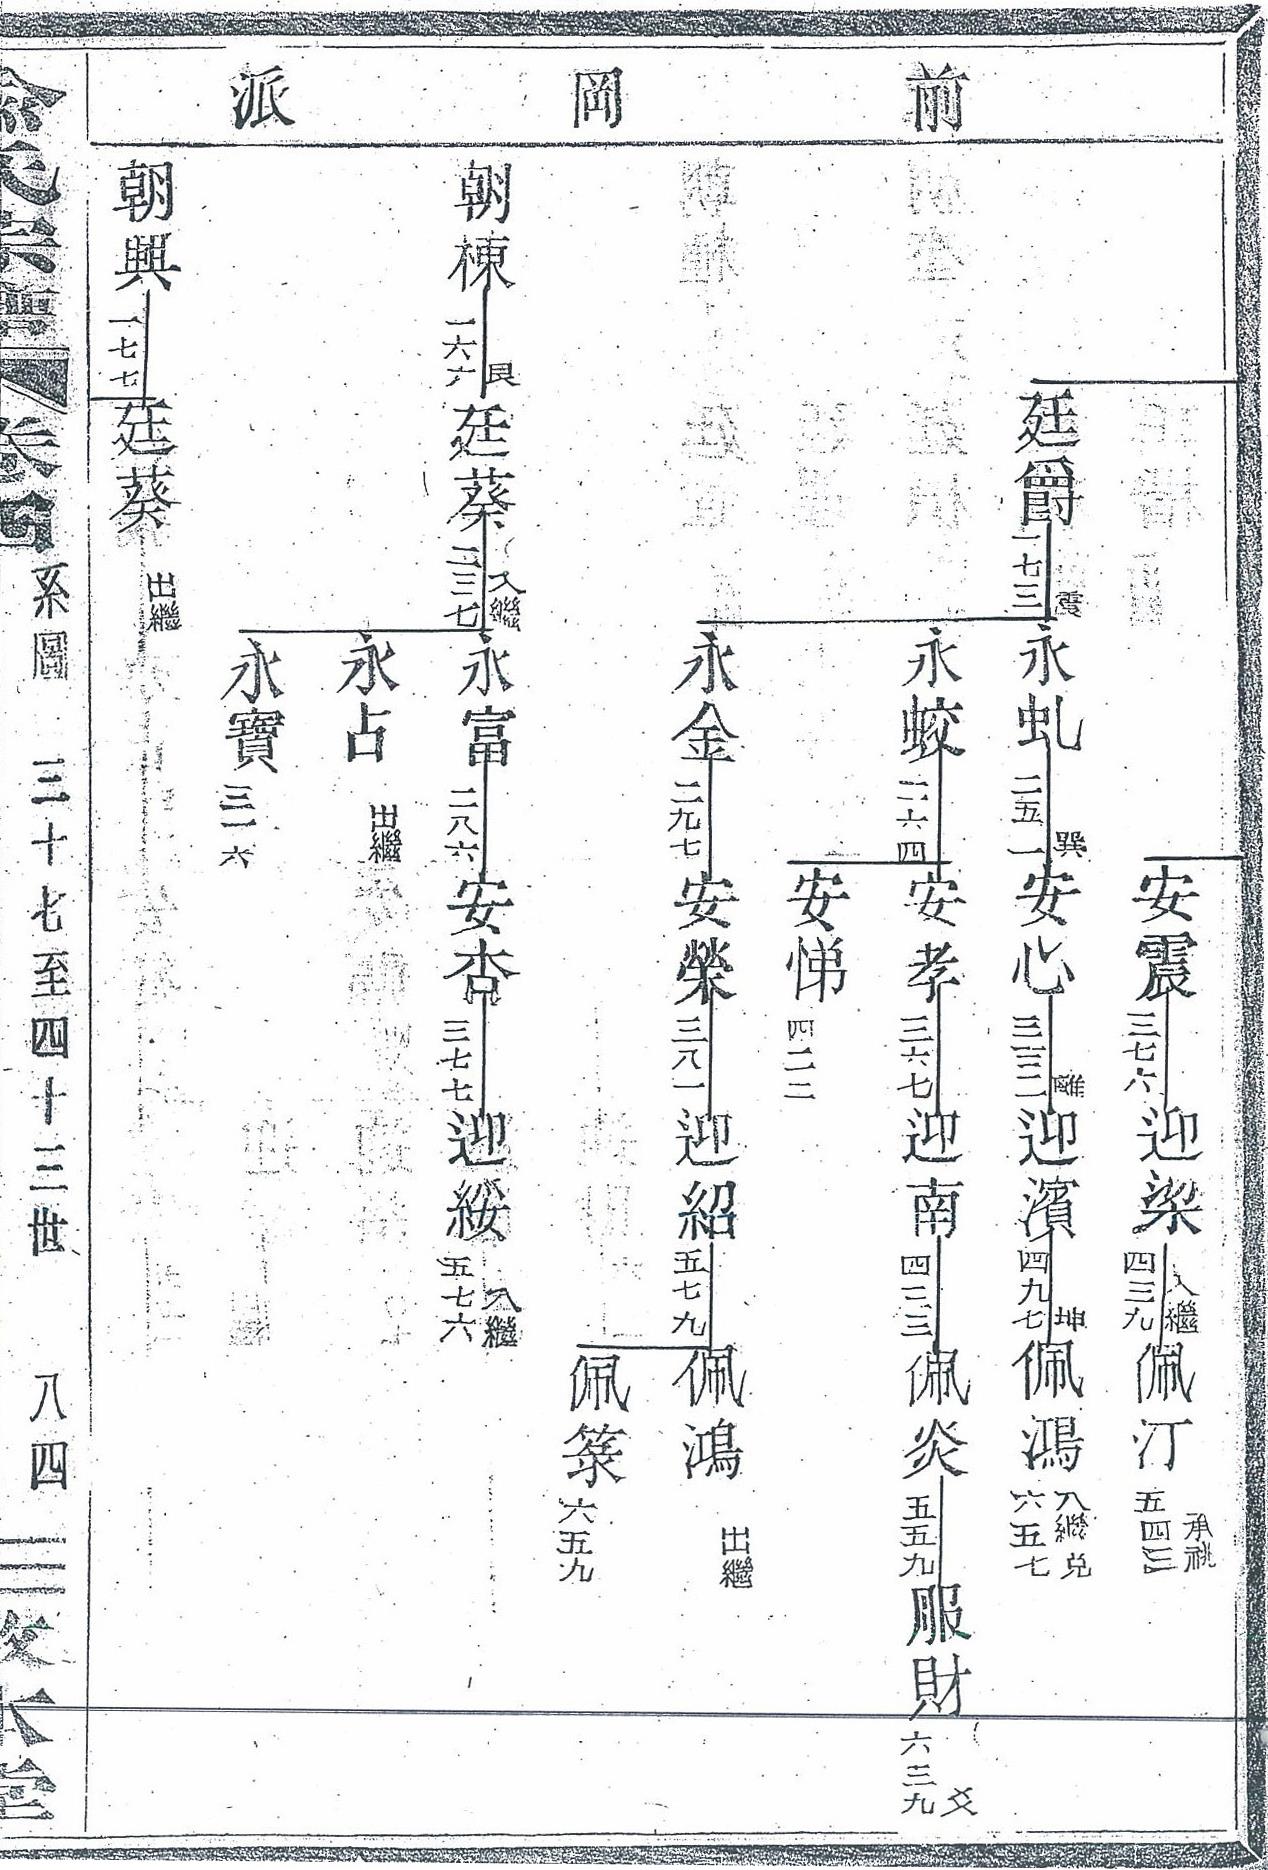 前岡派
安震 三七六
迎梁 四三九 入繼
佩汀 五四三 承祧
廷爵 一七三 震
永虬 二五一 巽
安心 三三二 離
迎濱 四九七 坤
佩鴻 六五七 入繼 兌
永蛟 二六四
安孝 三六七
迎南 四三三
佩炎 五五九
服財 六三九 爻
安悌 四二二
永金 二九七
安榮 三八一
迎紹 五七九
佩鴻 出繼
佩箓 六五九
朝棟 一六六 艮
廷葵 二三七 入繼
永富 二八六
安杏 三七七
迎綏 五七六 入繼
永占 出繼
永寶 三一六
朝興 一七七
廷葵 出繼
宗譜 卷四 系圖 三十七至四十三世 八四 敦本堂